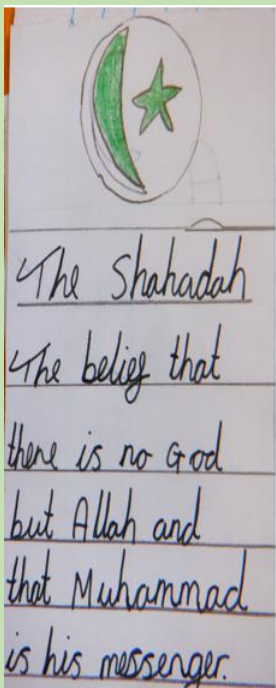 The Shahadah
The belief that
there is no God
but Allah and
that Muhammad
is his messenger.